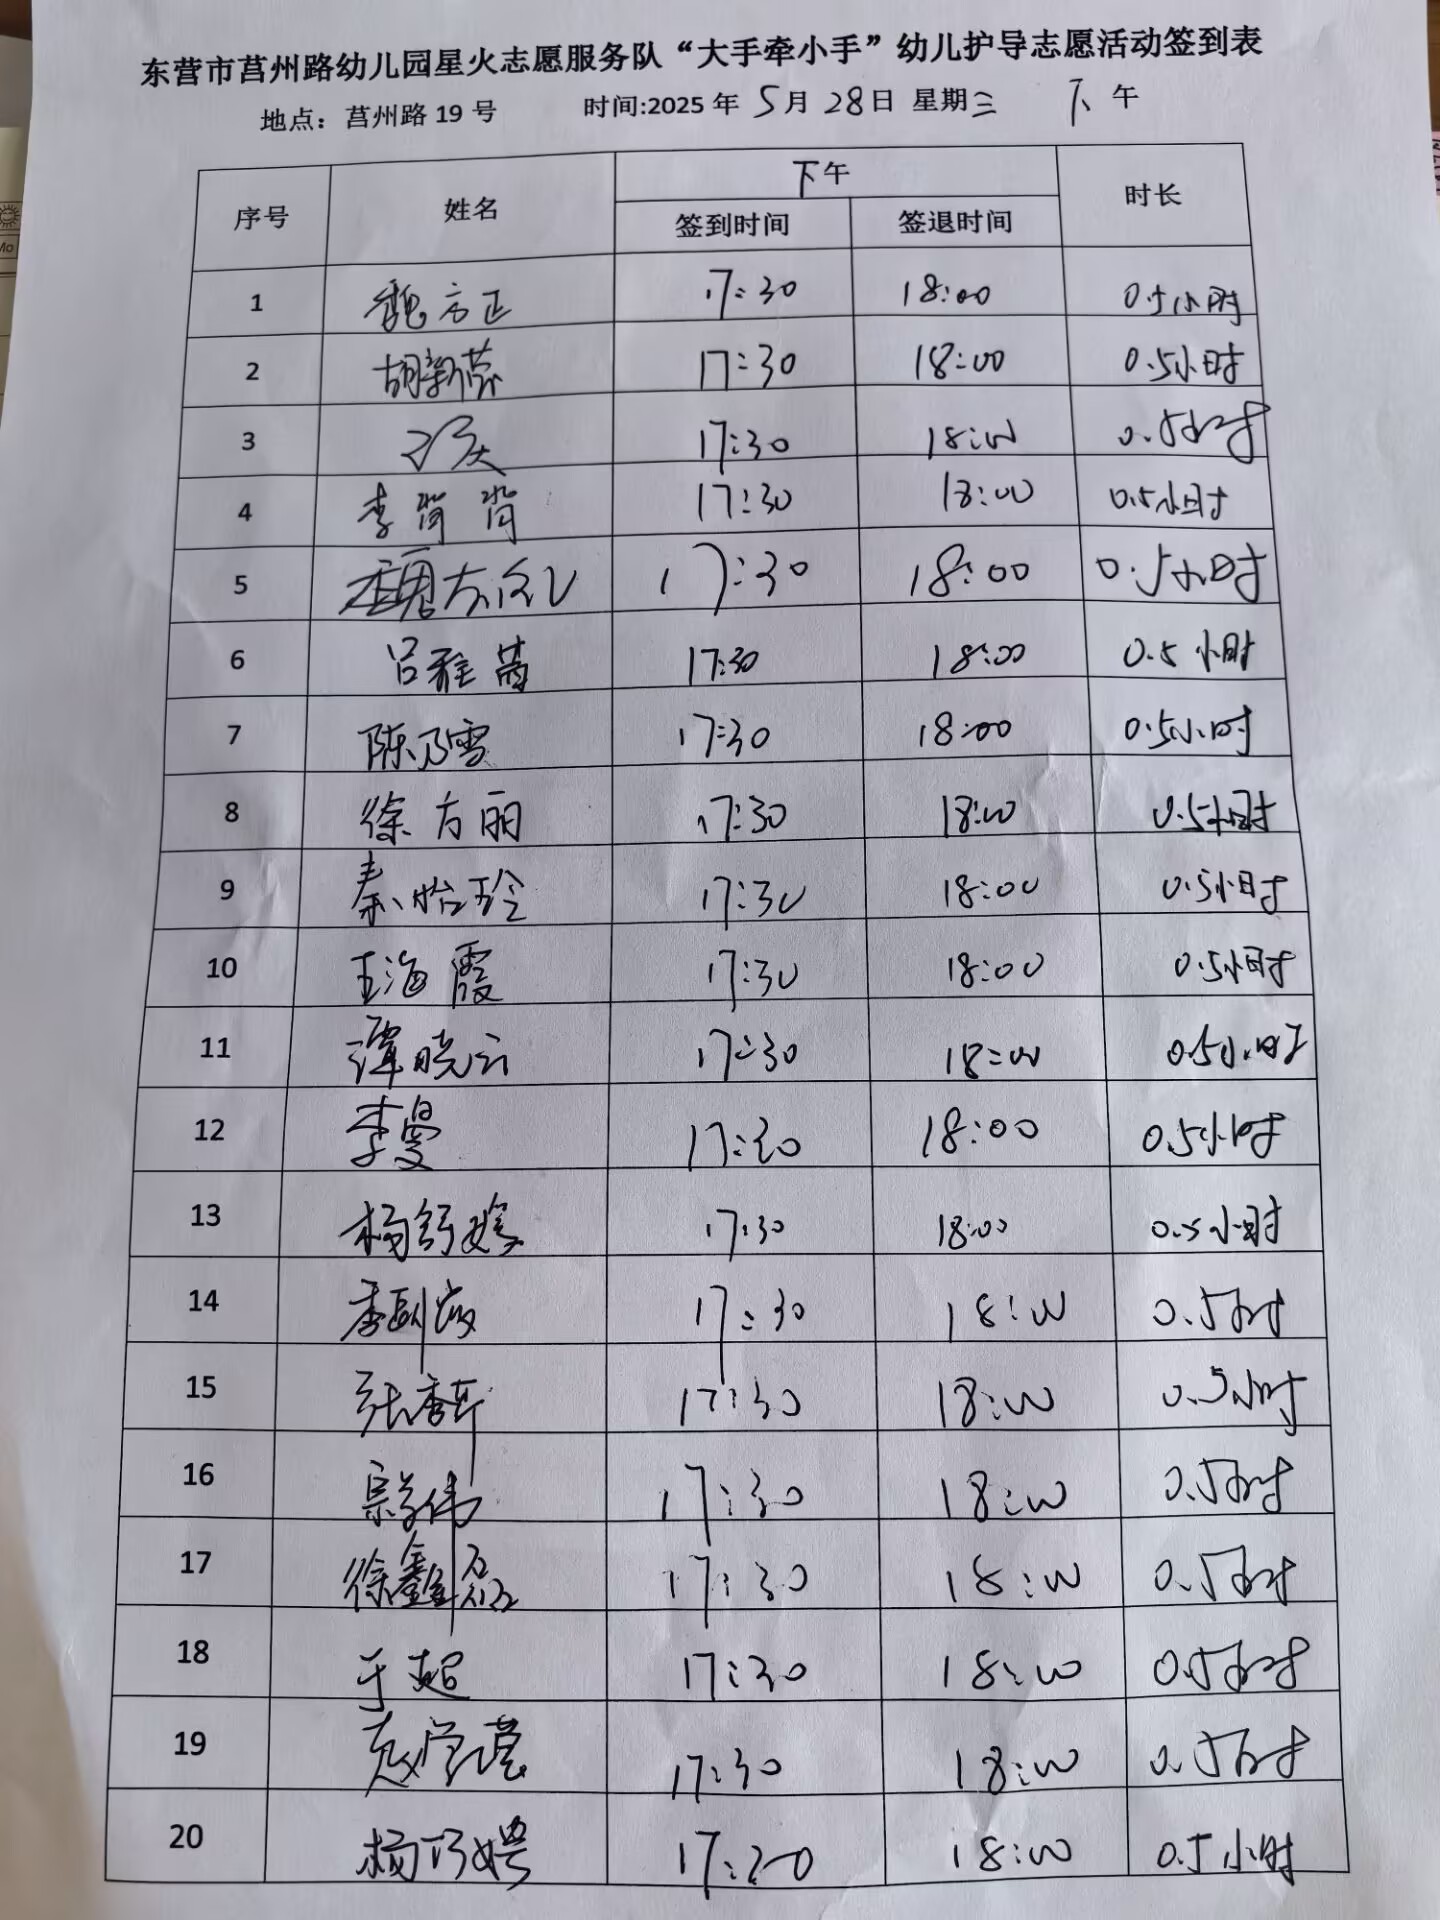 东营市莒州路幼儿园星火志愿服务队“大手牵小手”幼儿护导志愿活动签到表
地点：莒州路 19 号 时间:2025 年 5月 28日 星期三 下午
序号 姓名 下午 时长
签到时间 签退时间
1 魏方正 17:30 18:00 0.5小时
2 胡新蕊 17:30 18:00 0.5小时
3 17:30 18:00 0.5小时
4 李背背 17:30 18:00 0.5小时
5 17:30 18:00 0.5小时
6 吕雅茜 17:30 18:00 0.5小时
7 陈乃雪 17:30 18:00 0.5小时
8 徐方丽 17:30 18:00 0.5小时
9 秦怡玲 17:30 18:00 0.5小时
10 王海霞 17:30 18:00 0.5小时
11 谭晓云 17:30 18:00 0.5小时
12 李曼 17:30 18:00 0.5小时
13 17:30 18:00 0.5小时
14 17:30 18:00 0.5小时
15 17:30 18:00 0.5小时
16 宗学伟 17:30 18:00 0.5小时
17 徐鑫磊 17:30 18:00 0.5小时
18 于超 17:30 18:00 0.5小时
19 17:30 18:00 0.5小时
20 杨巧娉 17:20 18:00 0.5小时